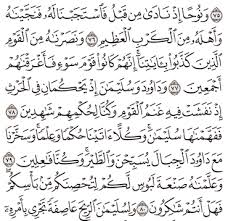 ٧٥ وَنُوحًا إِذْ نَادَىٰ مِن قَبْلُ فَٱسْتَجَبْنَا لَهُۥ فَنَجَّيْنَٰهُ
وَأَهْلَهُۥ مِنَ ٱلْكَرْبِ ٱلْعَظِيمِ ٧٦ وَنَصَرْنَٰهُ مِنَ ٱلْقَوْمِ
ٱلَّذِينَ كَذَّبُوا۟ بِـَٔايَٰتِنَآ إِنَّهُمْ كَانُوا۟ قَوْمَ سَوْءٍ فَأَغْرَقْنَٰهُمْ
أَجْمَعِينَ ٧٧ وَدَاوُۥدَ وَسُلَيْمَٰنَ إِذْ يَحْكُمَانِ فِى ٱلْحَرْثِ
إِذْ نَفَشَتْ فِيهِ غَنَمُ ٱلْقَوْمِ وَكُنَّا لِحُكْمِهِمْ شَٰهِدِينَ ٧٨
فَفَهَّمْنَٰهَا سُلَيْمَٰنَ وَكُلًّا ءَاتَيْنَا حُكْمًا وَعِلْمًا وَسَخَّرْنَا
مَعَ دَاوُۥدَ ٱلْجِبَالَ يُسَبِّحْنَ وَٱلطَّيْرَ وَكُنَّا فَٰعِلِينَ ٧٩
وَعَلَّمْنَٰهُ صَنْعَةَ لَبُوسٍ لَّكُمْ لِتُحْصِنَكُم مِّنۢ بَأْسِكُمْ
فَهَلْ أَنتُمْ شَٰكِرُونَ ٨٠ وَلِسُلَيْمَٰنَ ٱلرِّيحَ عَاصِفَةً تَجْرِى بِأَمْرِهِۦٓ